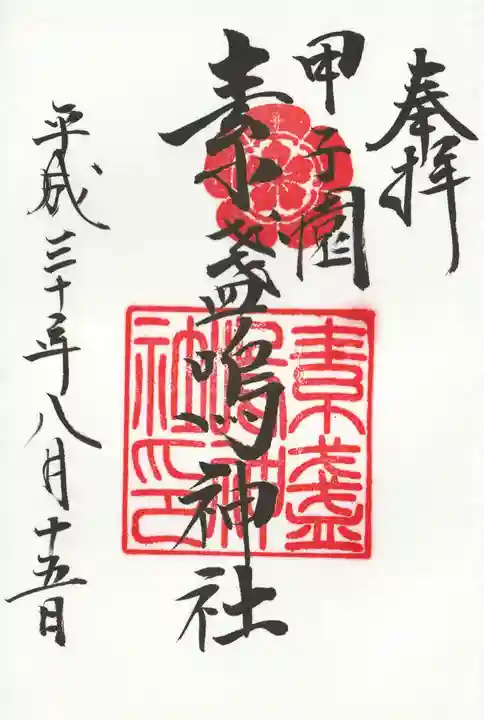 奉拝
甲子園
素盞嗚神社
素盞
嗚神
社之印
平成三十年八月十五日